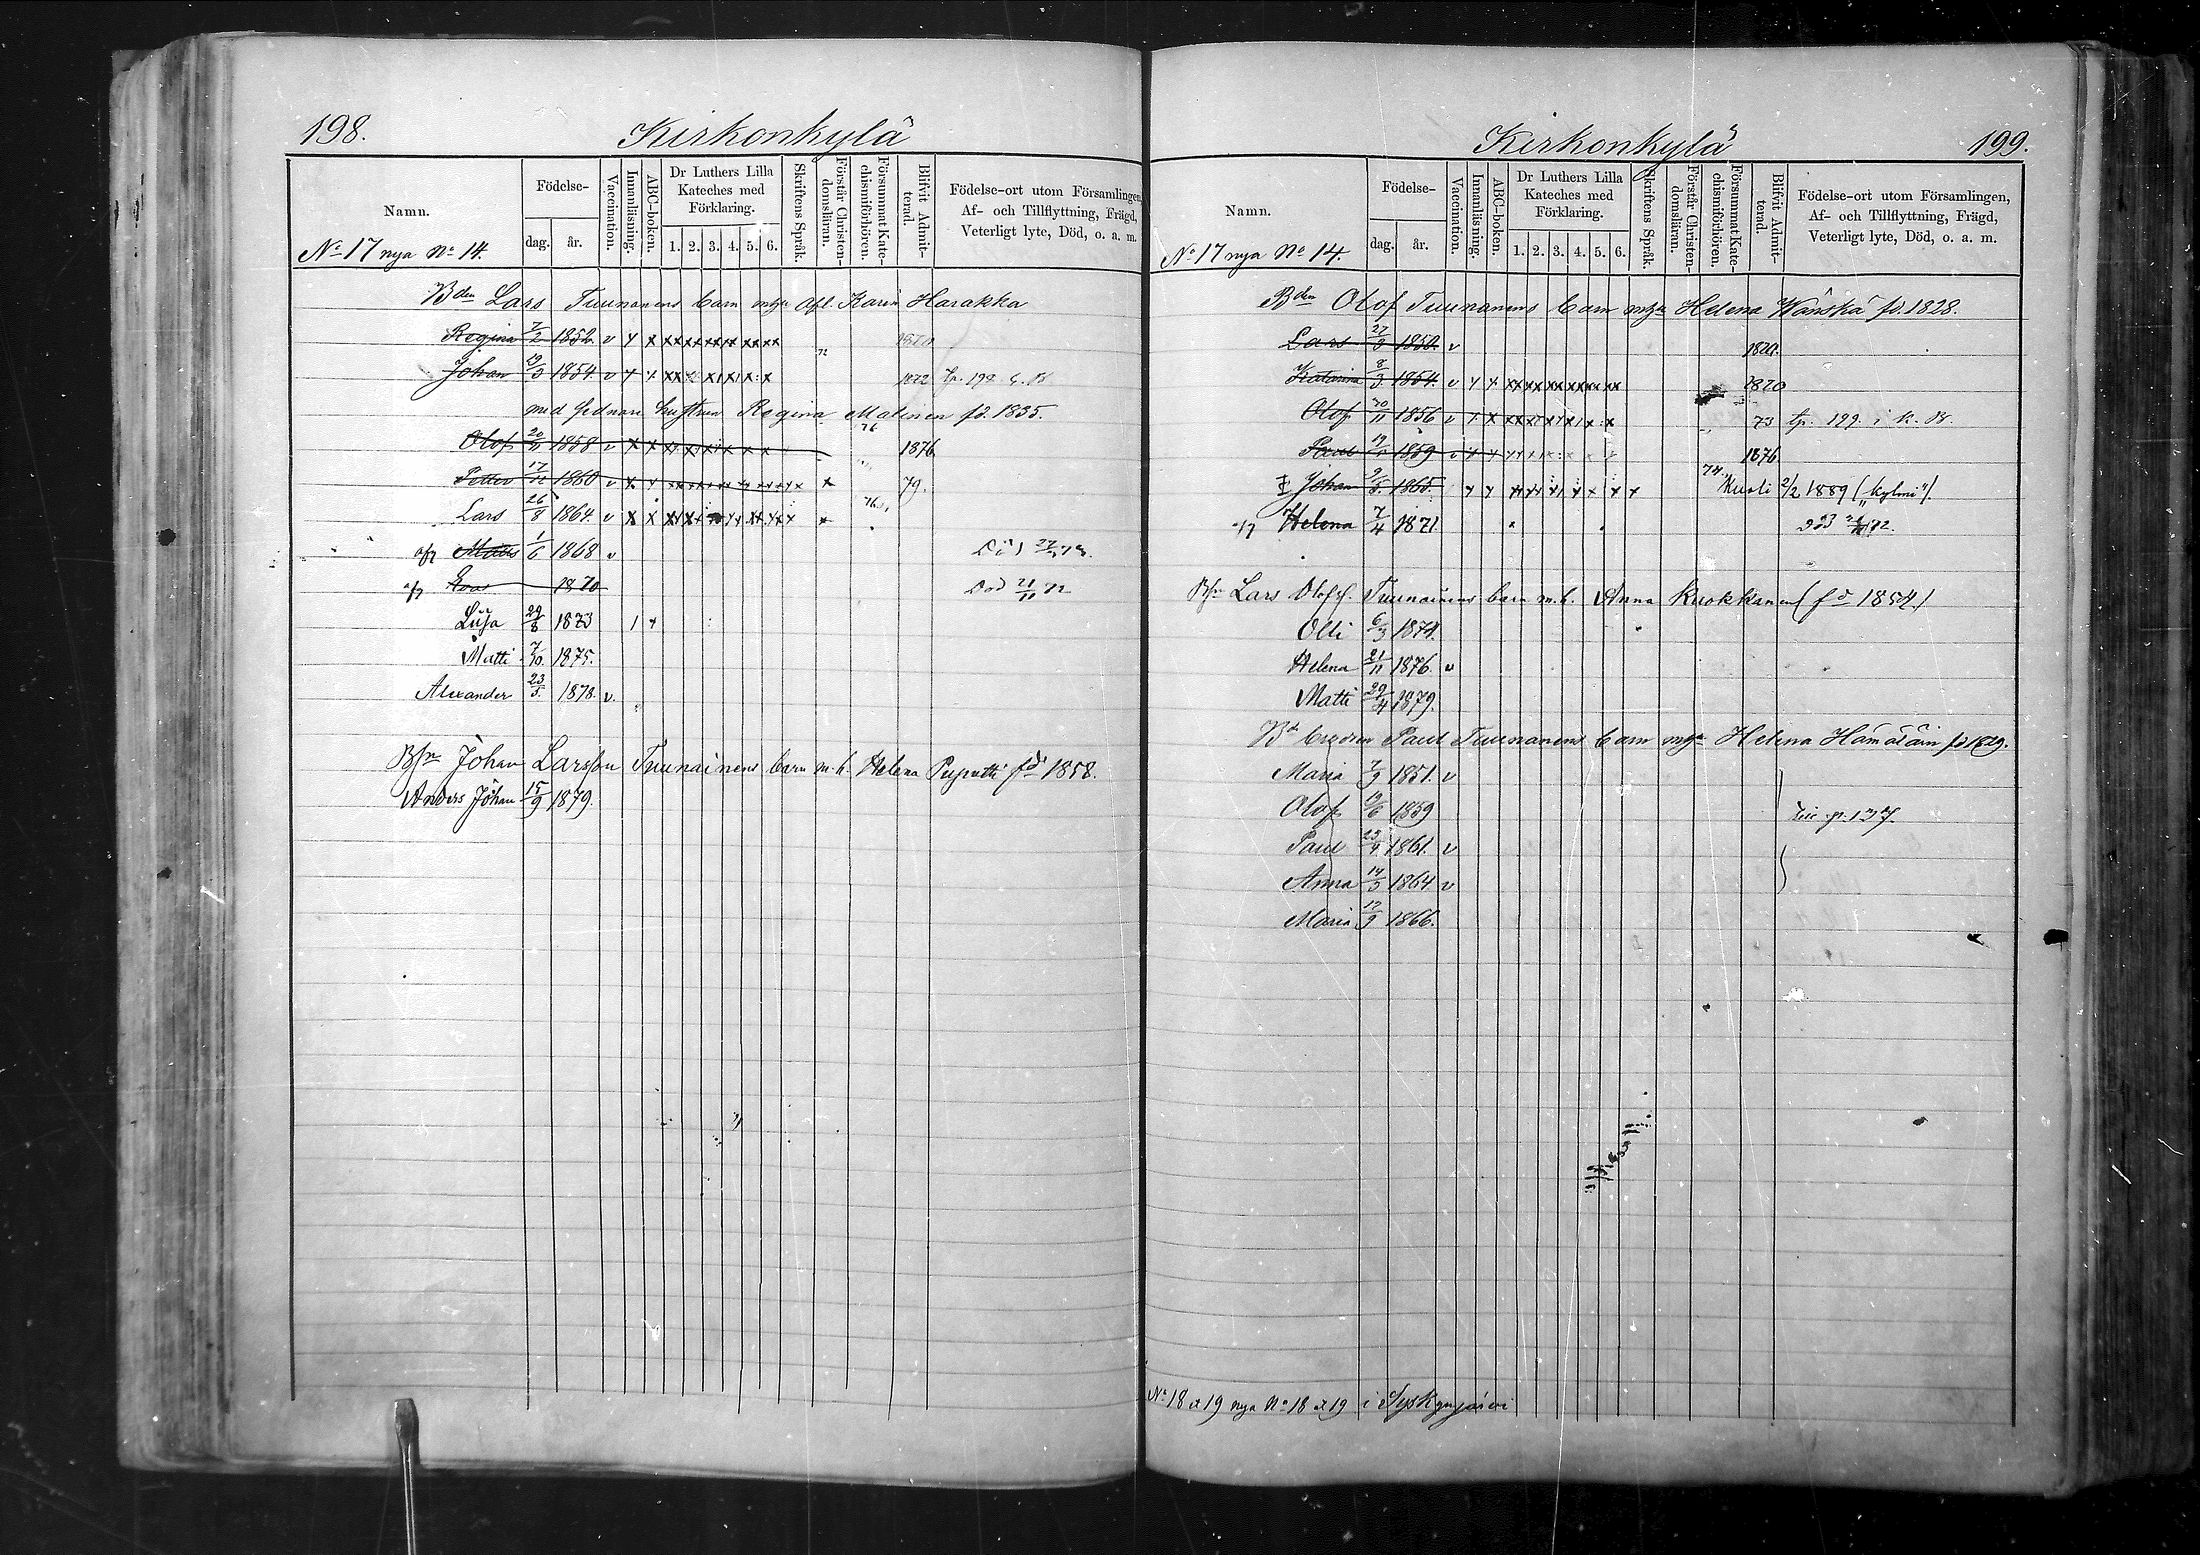 198.
Kirkonkylä
Namn.
Födelse-
dag.
år.
Vaccination.
Innanläsning.
ABC-boken.
Dr Luthers Lilla Kateches med Förklaring.
1. 2. 3. 4. 5. 6.
Skriftens Språk.
Förstår Christendomsläran.
Försummat Katechismiförhören.
Blifvit Admitterad.
Födelse-ort utom Församlingen,
Af- och Tillflyttning, Frägd,
Veterligt lyte, Död, o. a. m.
No 17 nya No 14.
Bden Lars Tuunanens barn m afl. Karin Harakka
Regina 7/2 1852. v
Johan 19/3 1854. v 1872
med sednare hustrun Regina Malinen fd. 1835.
Olof 20/11 1858 v 76 1876
Petter 17/12 1860 v 79.
Lars 26/8 1864. v 76
Matts 1/6 1868 v Död
Eva 1870 Död 21/11 72
Luisa 29/8 1873
Matti 7/10. 1875.
Alexander 23/5. 1878. v.
Johan Larsson Tuunainens barn m. h. Helena Puputti fd 1858.
Anders Johan 15/9 1879.
Kirkonkylä
199.
Namn.
Födelse-
dag.
år.
Vaccination.
Innanläsning.
ABC-boken.
Dr Luthers Lilla Kateches med Förklaring.
1. 2. 3. 4. 5. 6.
Skriftens Språk.
Förstår Christendomsläran.
Försummat Katechismiförhören.
Blifvit Admitterad.
Födelse-ort utom Församlingen,
Af- och Tillflyttning, Frägd,
Veterligt lyte, Död, o. a. m.
No 17 nya No 14.
Bden Olof Tuunanens barn m Helena Wänskä fd. 1828.
Lars 1850. v 1870.
Katarina 8/3 1854. v 1870
Olof 30/11 1856 v 73 199
Paul 1859 v 1876
Johan 1865. 74. Kuoli 2/2 1889 (kylmi").
Helena 7/4 1871 död
Lars Olofs. Tuunainens barn m. h. Anna Kuokkanen (fd 1854.)
Olli 6/3 1874.
Helena 21/11 1876. v
Matti 29/4 1879.
Paul Tuunanens barn m Helena Hämäläin fd 1829.
Maria 7/9 1851. v
Olof 19/6 1859
Paul 1861. v
Anna 14/3 1864 v
Maria 17/9 1866.
No 18 & 19 nya No 18 & 19 i Syskynjärvi